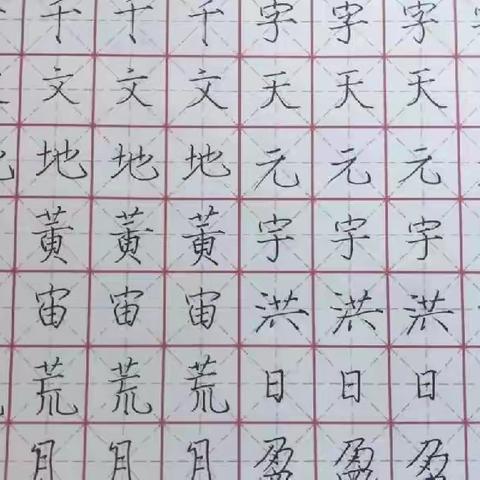 千千千字字字
文文文天天天
地地地元元元
黃黃黃宇宇宇
宙宙宙洪洪洪
荒荒荒日日日
月月月盈盈盈